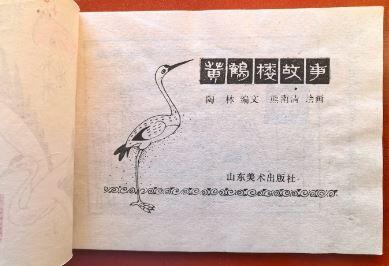 黄鹤楼故事
陶林 编文 熊南清 绘画
山东美术出版社